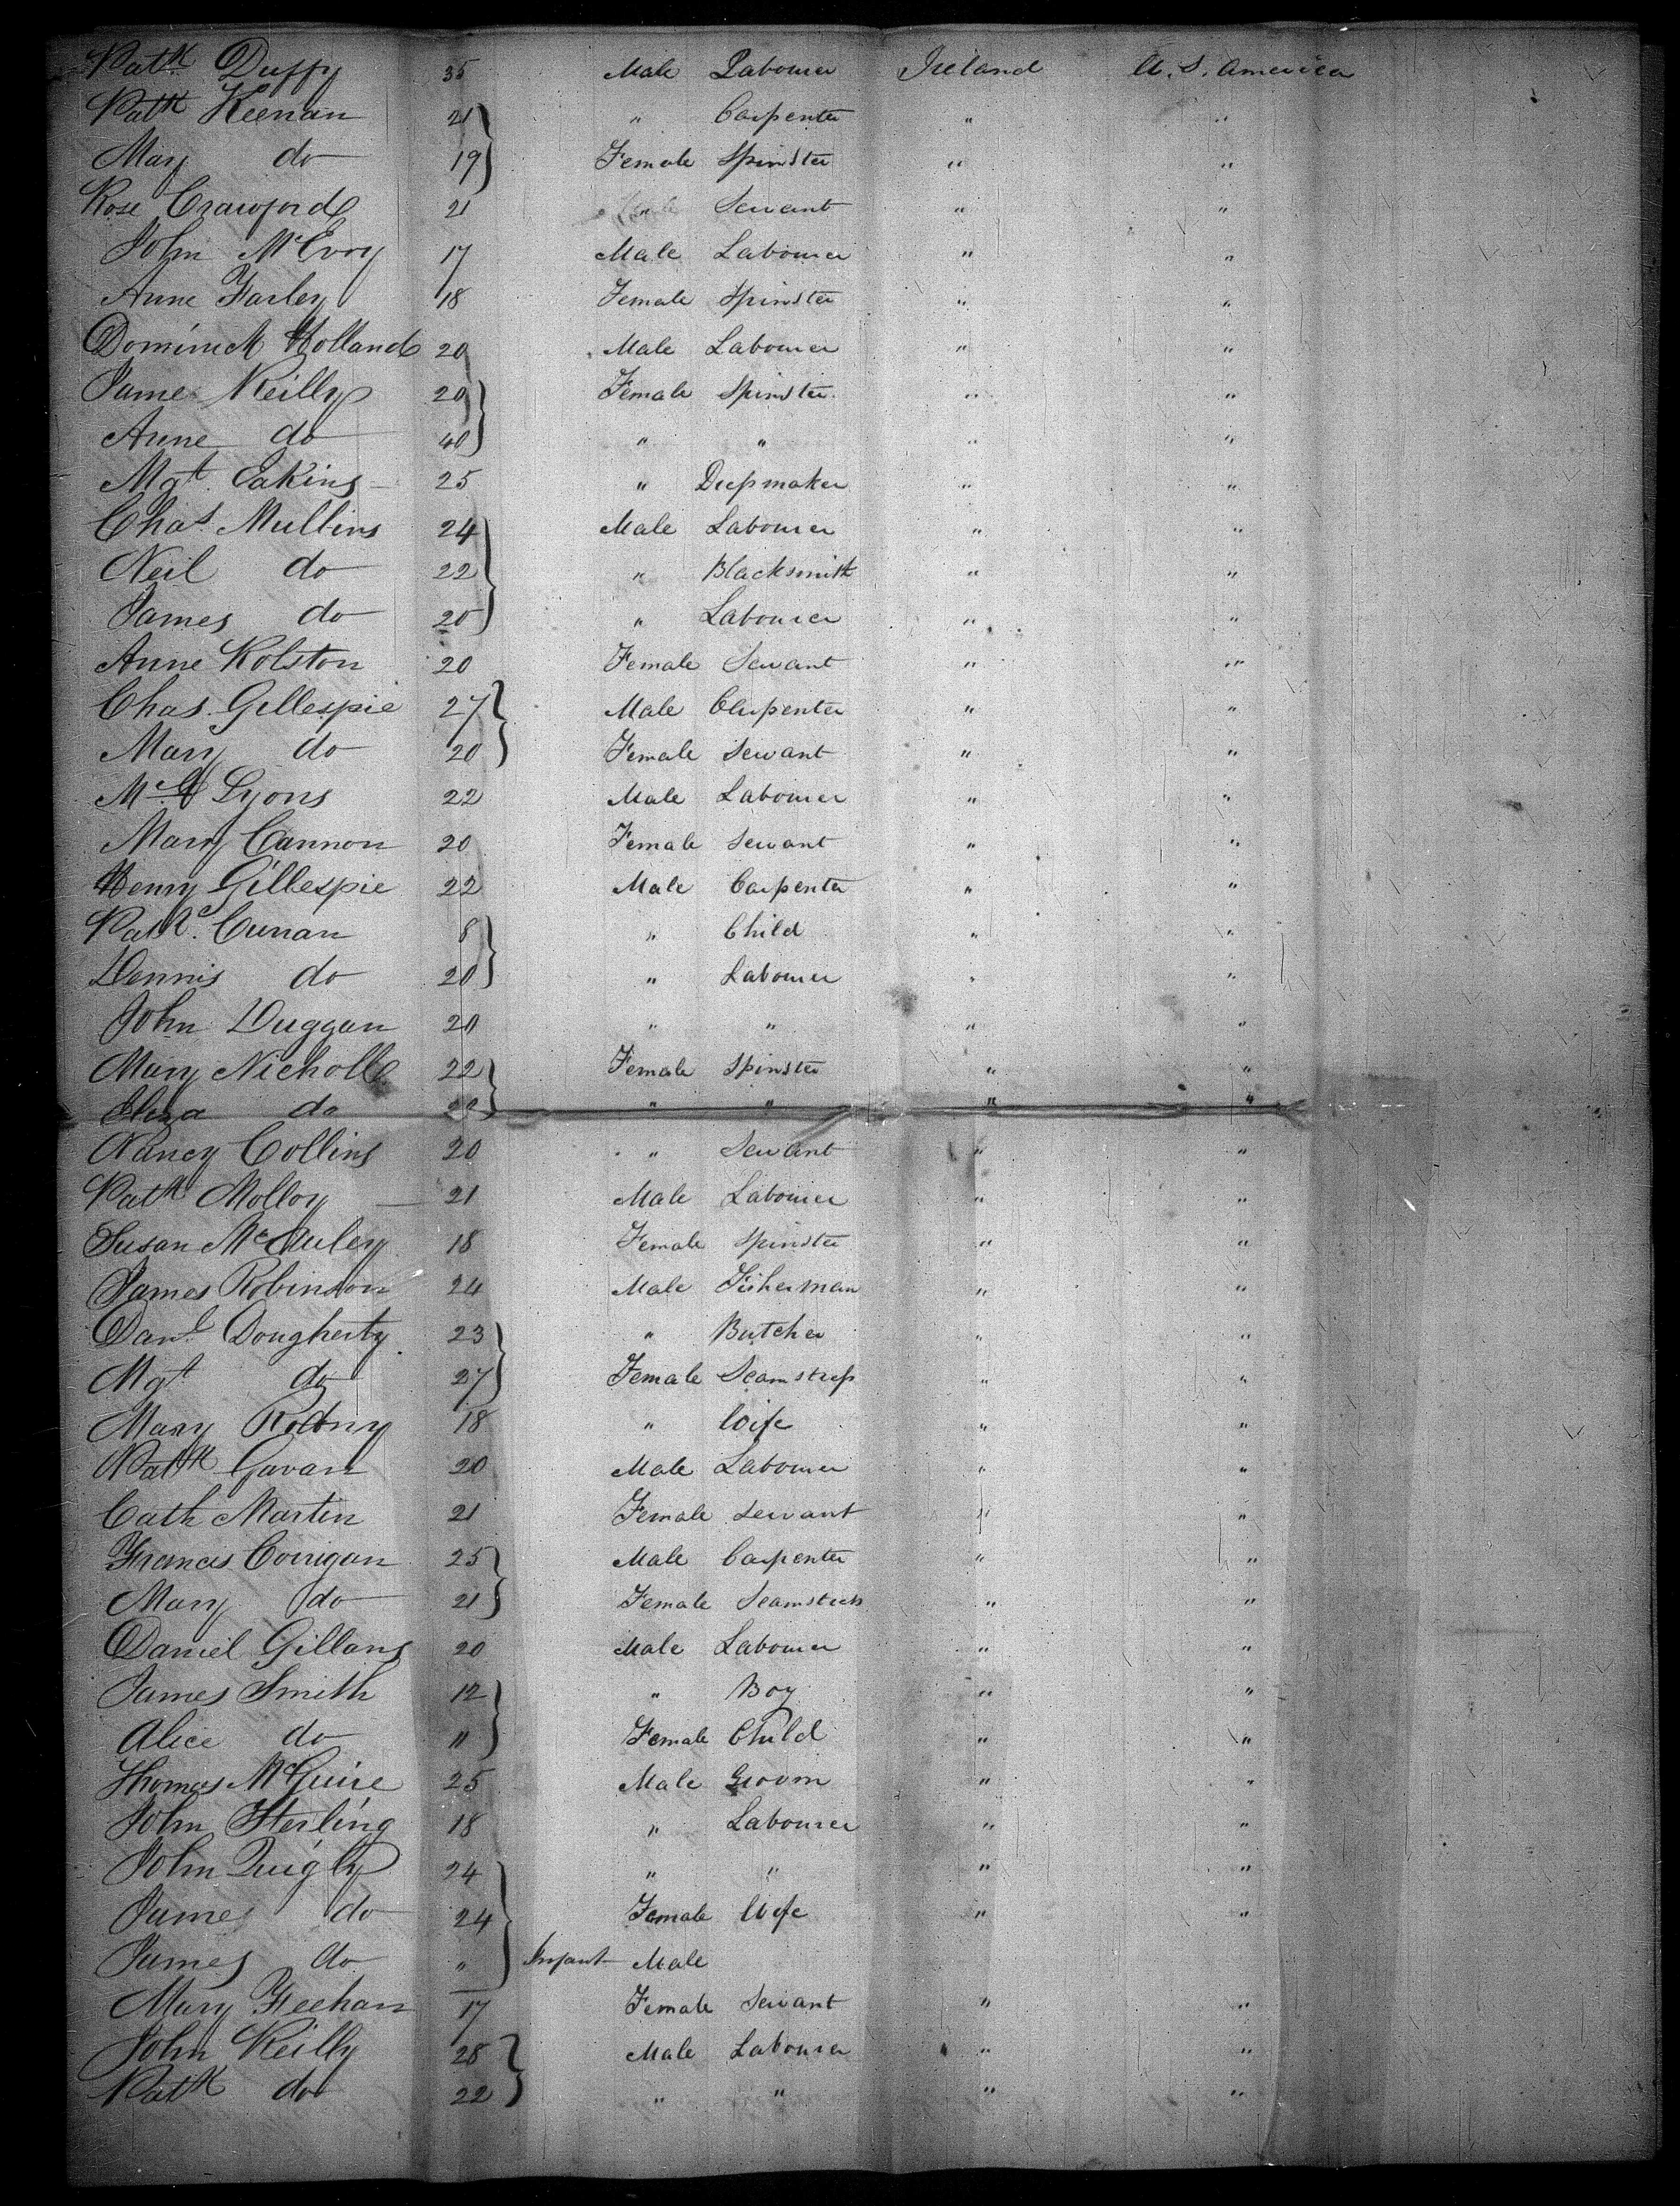 Patk Duffy 35 Male Labourer Ireland U. S. America
Patk Keenan 21 " Carpenter " "
Mary do 19 Female Spinster " "
Rose Crawford 21 " Servant " "
John McEvoy 17 Male Labourer " "
Anne Farley 18 Female Spinster " "
Dominick Holland 20 Male Labourer " "
Jane Reilly 20 Female Spinster " "
Anne do 40 " " " "
Mgt Eakins 25 " Dressmaker " "
Chas Mullins 24 Male Labourer " "
Neil do 22 " Blacksmith " "
James do 20 " Labourer " "
Anne Rolston 20 Female Servant " "
Chas. Gillespie 27 Male Carpenter " "
Mary do 20 Female Servant " "
Lyons 22 Male Labourer " "
Mary Cannon 20 Female Servant " "
Henry Gillespie 22 Male Carpenter " "
Patk. Cunan 8 " Child " "
Dennis do 20 " Labourer " "
John Duggan 20 " " " "
Mary Nicholl 22 Female Spinster " "
Eliza do 20 " " " "
Nancy Collins 20 " Servant " "
Patk Molloy 21 Male Labourer " "
Susan McAuley 18 Female Spinster " "
James Robinson 24 Male Fisherman " "
Danl Dougherty 23 " Butcher " "
Mgt do 27 Female Seamstress " "
Mary Rodny 18 " Wife " "
Patk Gavan 20 Male Labourer " "
Cath Martin 21 Female Servant " "
Francis Corrigan 25 Male Carpenter " "
Mary do 21 Female Seamstress " "
Daniel Gillans 20 Male Labourer " "
James Smith 12 " Boy " "
Alice do 11 Female Child " "
Thomas McGuire 25 Male Groom " "
John Sterling 18 " Labourer " "
John Quigly 24 " " " "
Jane do 24 Female Wife " "
James do " Infant Male
Mary Feehan 17 Female Servant " "
John Reilly 28 Male Labourer " "
Patk do 22 " " " "